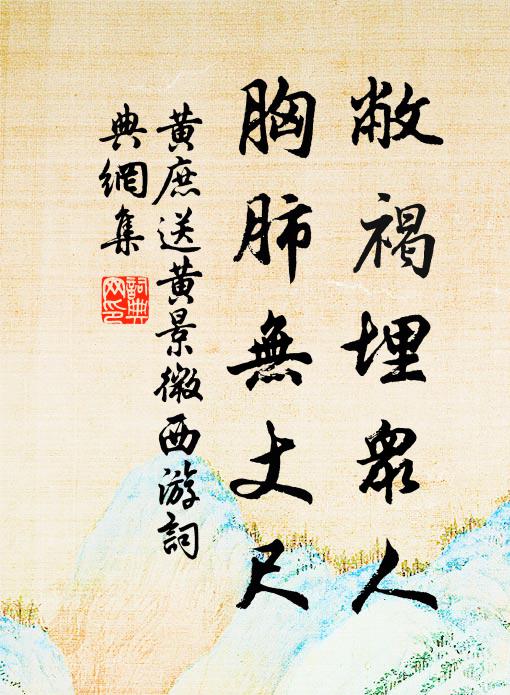 敝褐埋眾人
胸肺無丈尺
黃庶送黃景微西游詞
典網集
詞典
网印